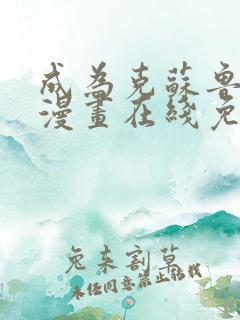 成為克蘇魯
漫畫在綫免
兔来割草
未经同意禁止转载